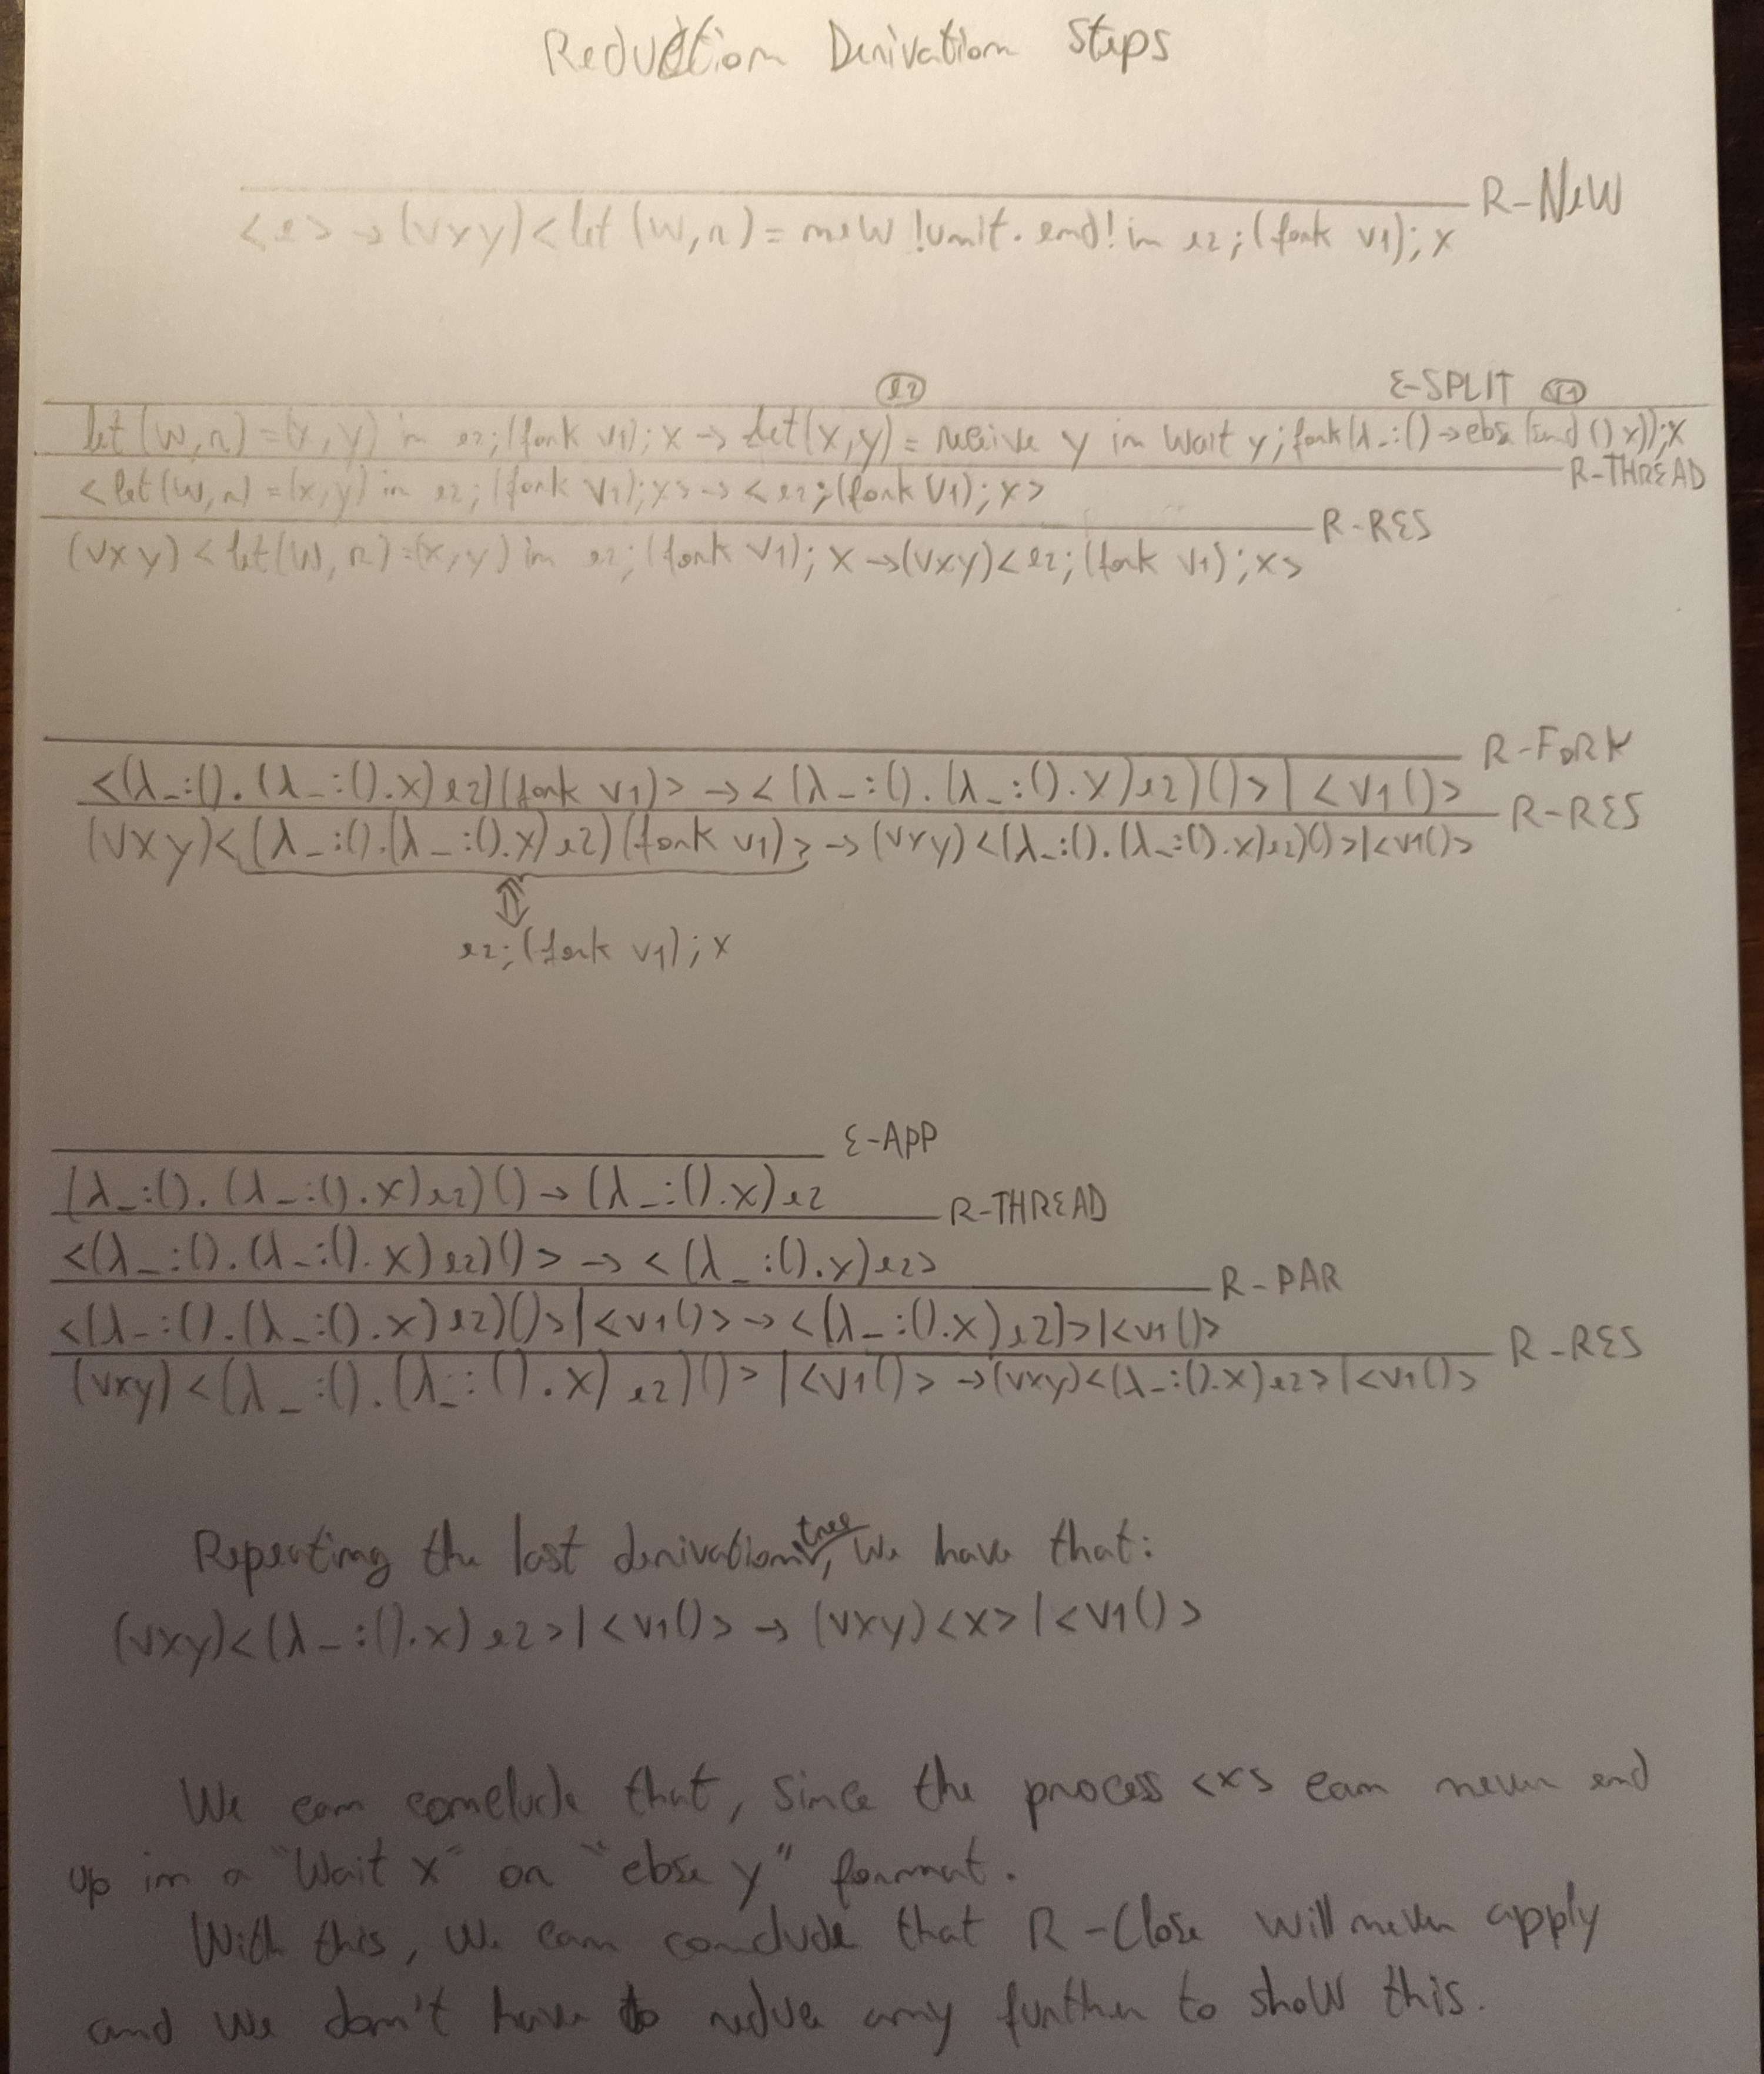 Reduction Derivation Steps
R-New
<e> → (νxy)<let (w,r) = new !unit.end! in e2;(fork v1);x
e2
E-SPLIT v1
let (w,r) = (x,y) in e2;(fork v1);x → let(x,y) = receive y in wait y;fork(λ_:()→close (send () x));x
R-THREAD
<let (w,r) = (x,y) in e2;(fork v1);x> → <e2;(fork v1);x>
R-RES
(νxy)<let(w,r)=(x,y) in e2;(fork v1);x → (νxy)<e2;(fork v1);x>
R-FORK
<(λ_:().(λ_:().x)e2)(fork v1)> → <(λ_:().(λ_:().x)e2)()> | <v1()>
R-RES
(νxy)<(λ_:().(λ_:().x)e2)(fork v1)> → (νxy)<(λ_:().(λ_:().x)e2)()>|<v1()>
⇕
e2;(fork v1);x
E-APP
(λ_:().(λ_:().x)e2)() → (λ_:().x)e2
R-THREAD
<(λ_:().(λ_:().x)e2)()> → <(λ_:().x)e2>
R-PAR
<(λ_:().(λ_:().x)e2)()>|<v1()> → <(λ_:().x)e2)>|<v1()>
R-RES
(νxy)<(λ_:().(λ_:().x)e2)()>|<v1()> → (νxy)<(λ_:().x)e2>|<v1()>
Repeating the last derivation tree, we have that:
(νxy)<(λ_:().x)e2>|<v1()> → (νxy)<x>|<v1()>
We can conclude that, since the process <x> can never end
up in a "Wait x" or "close y" format.
With this, we can conclude that R-Close will never apply
and we don't have to reduce any further to show this.